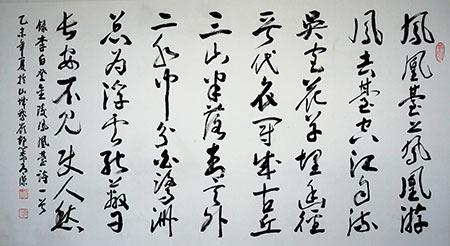 鳳凰臺上鳳凰游
鳳去臺空江自流
吳宮花草埋幽徑
晉代衣冠成古丘
三山半落青天外
二水中分白鷺洲
總為浮雲能蔽日
長安不見使人愁
錄李白登金陵鳳凰臺詩一首
乙未年夏於山城